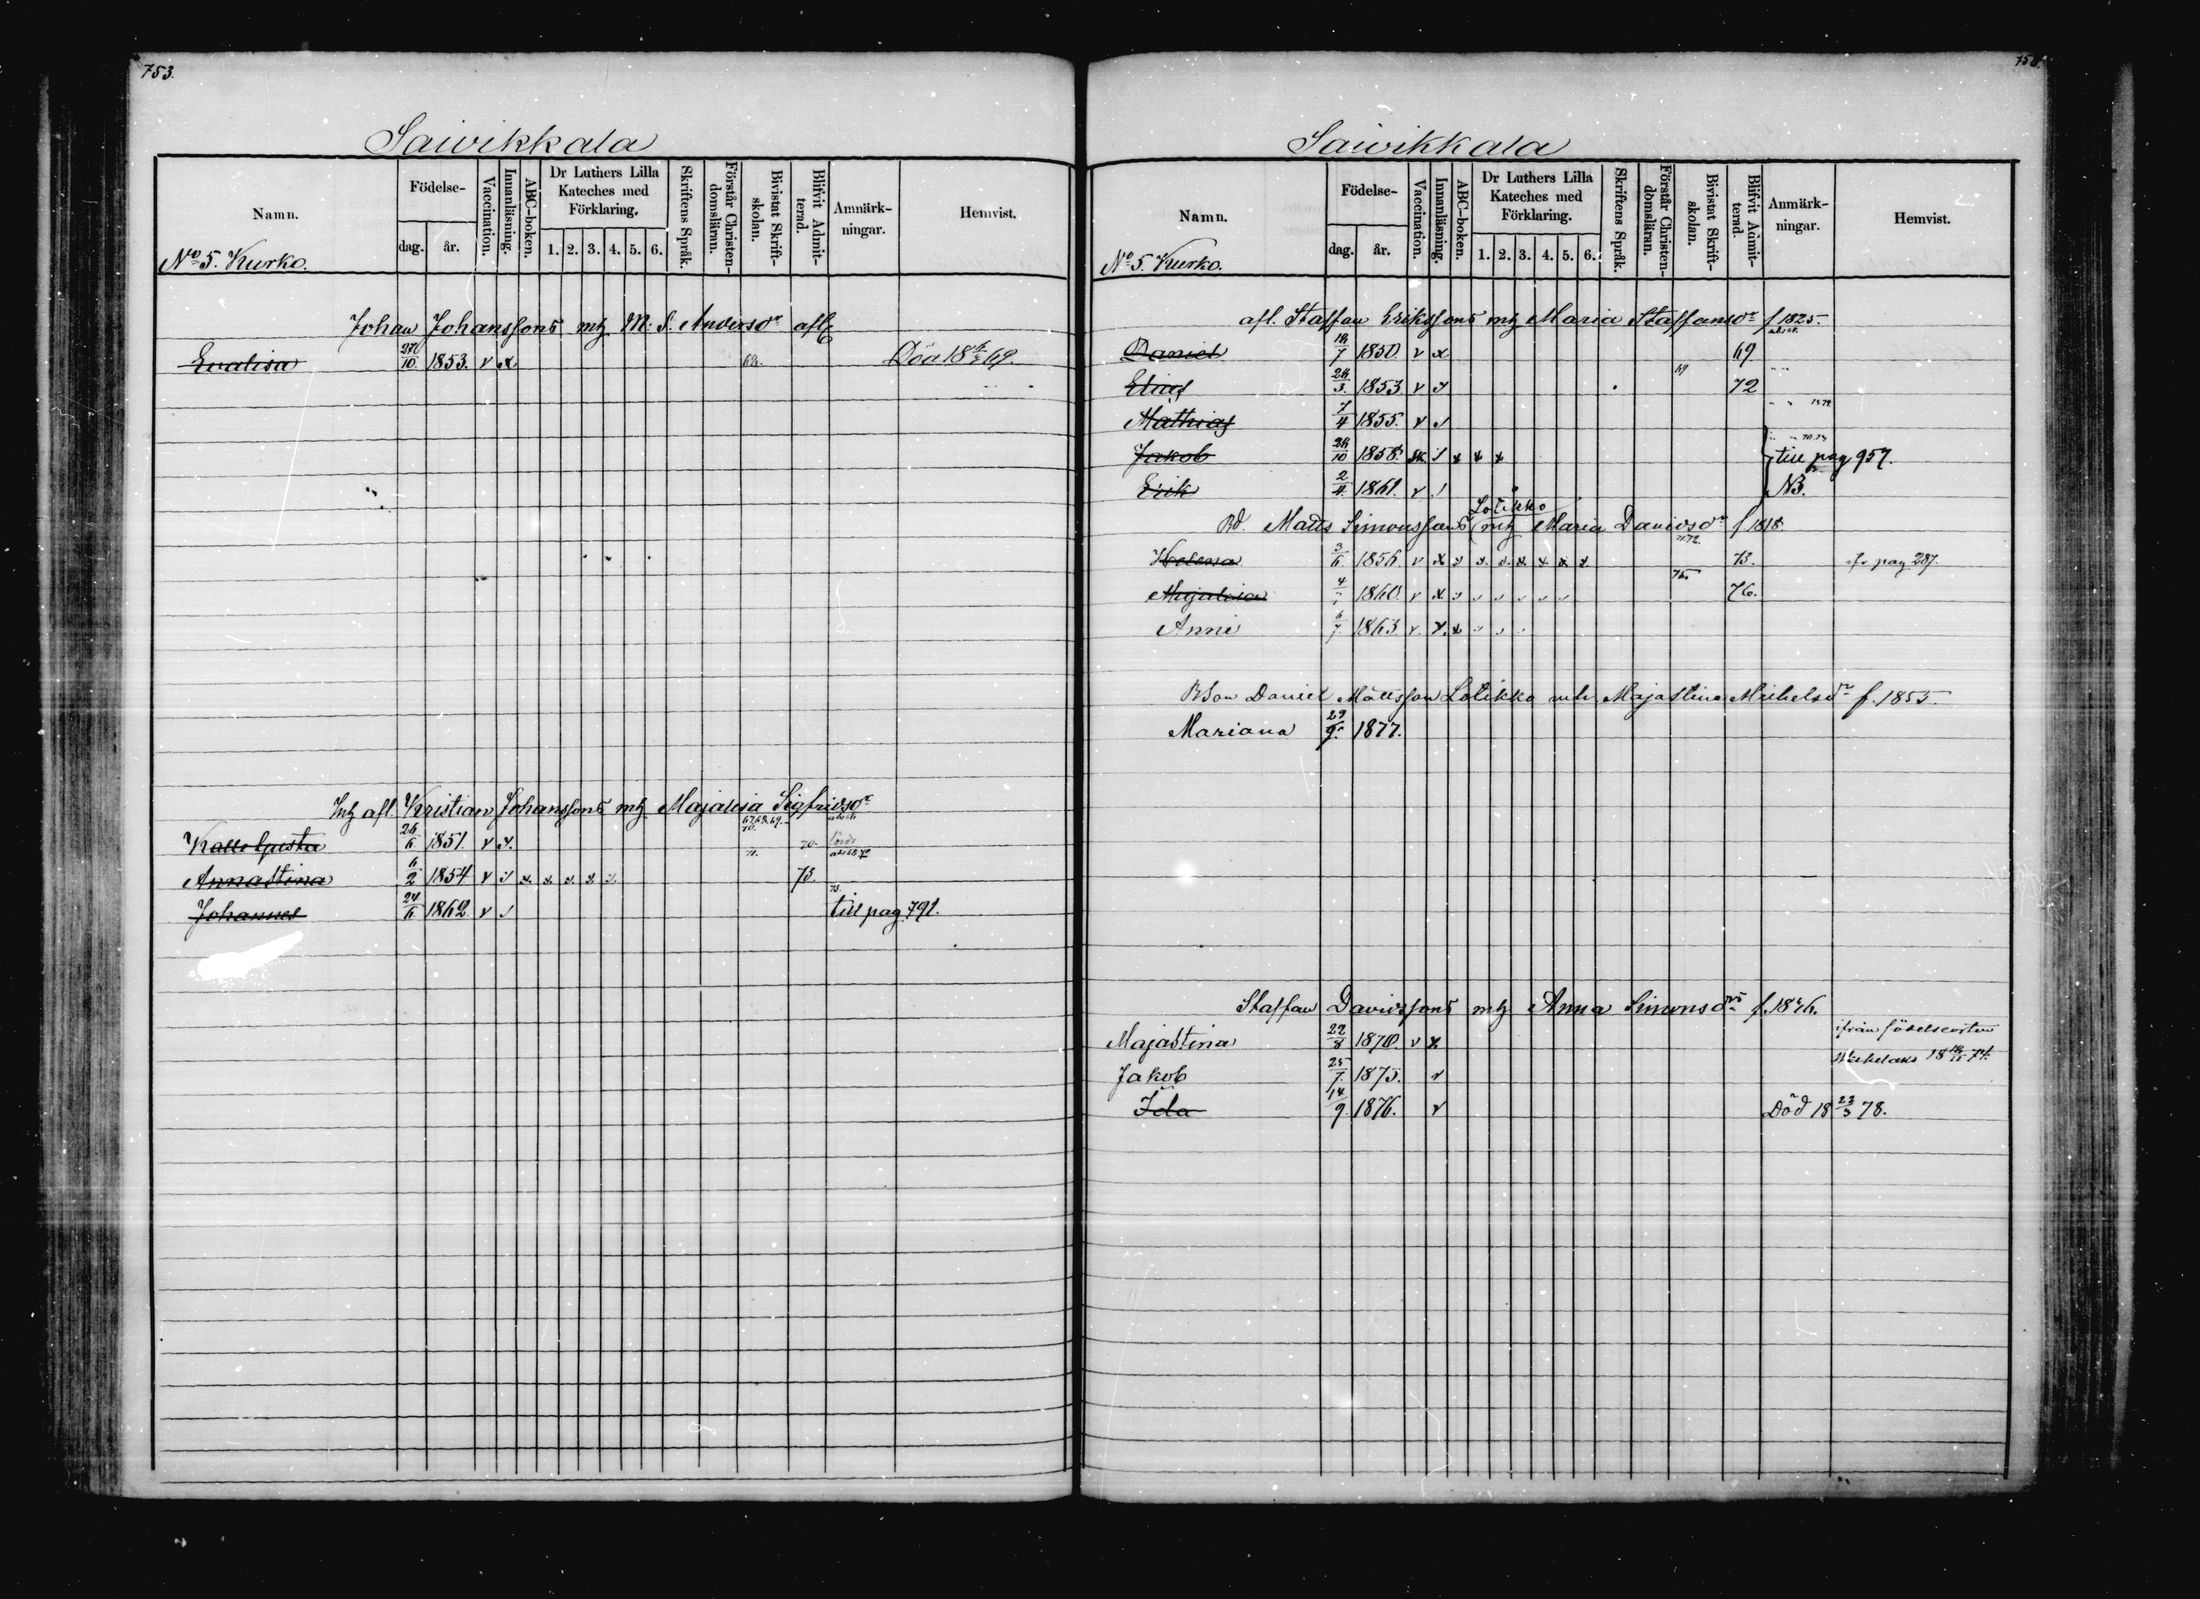 753.
Saivikkala
Namn.
Födelse-
dag. år.
Vaccination.
Innanläsning.
ABC-boken.
Dr Luthers Lilla
Kateches med
Förklaring.
1. 2. 3. 4. 5. 6.
Skriftens Språk.
Förstår Christen-
domsläran.
Bivistat Skrift-
skolan.
Blifvit Admit-
terad.
Anmärk-
ningar.
Hemvist.
No 5. Kurko.
Johan Johanssons M: S. Andersdr
Evalisa 10 1853. v x Död 18 69.
Enk afl. Kristian Johanssons Majalisa Sigfridsdr
67.68.69.
70.
Kalle Gusta 26/6 1851. v x. 70.
71.
Annastina 6/2 1854 v x x. x. x. x. x. 73.
73.
Johannes 24/6 1862 v / till pag 791.
Saivikkala
Namn.
Födelse-
dag. år.
Vaccination.
Innanläsning.
ABC-boken.
Dr Luthers Lilla
Kateches med
Förklaring.
1. 2. 3. 4. 5. 6.
Skriftens Språk.
Förstår Christen-
domsläran.
Bivistat Skrift-
skolan.
Blifvit Admit-
terad.
Anmärk-
ningar.
Hemvist.
No 5. Kurko.
afl. Staffan Erikssons Maria Staffansdr f 1825.
Daniel 7 1850. v x 69.
69
Elias 24/3. 1853. v x 72
Mathias 7/4 1855. v /
Jakob 24/10 1858. x x x till pag 957.
Erik 2/4. 1861. v / N3.
Lotikko
Matts Simonssons Maria Davidsdr f 1818.
71.72.
Helena 3/6. 1856. v x x x. x. x. x. x. x. 73. pag 287.
75.
Majalisa 4 1860. v x 76.
Anni 6/7. 1863. v. x. x
Bson Daniel Mattsson Lotikko Majastina Mikelsdr f. 1855.
Mariana 29/9. 1877.
Staffan Davidssons Anna Simonsdrs f. 1846.
ifrån födelseorten
Majastina 22/8 1870. v x.
18 74.
Jakob 25/7. 1875. v
Ida 14/9. 1876. v Död 18 23/3 78.